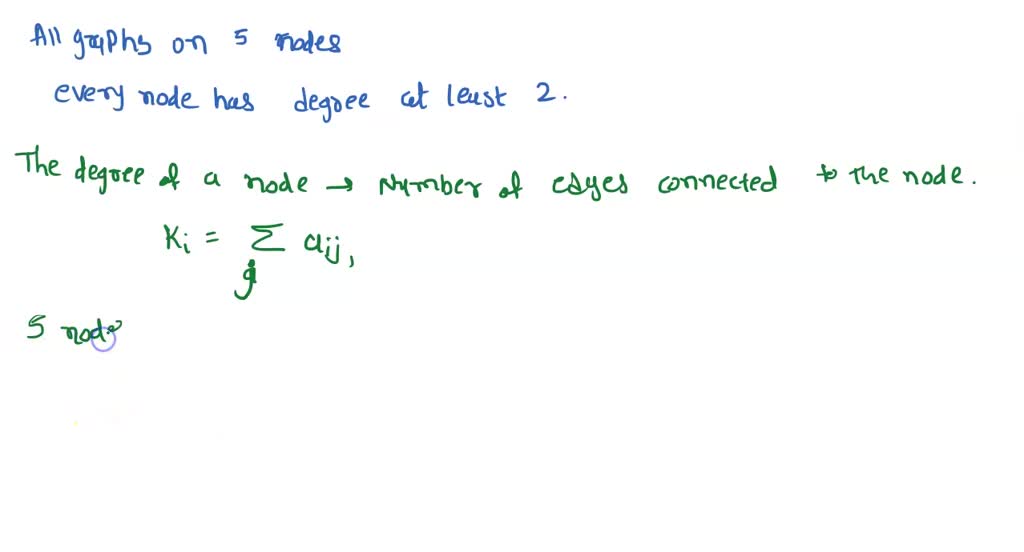 All graphs on 5 nodes
every node has degree at least 2.
The degree of a node → Number of edges connected to the node.
Ki = Σ aij,
j
5 node